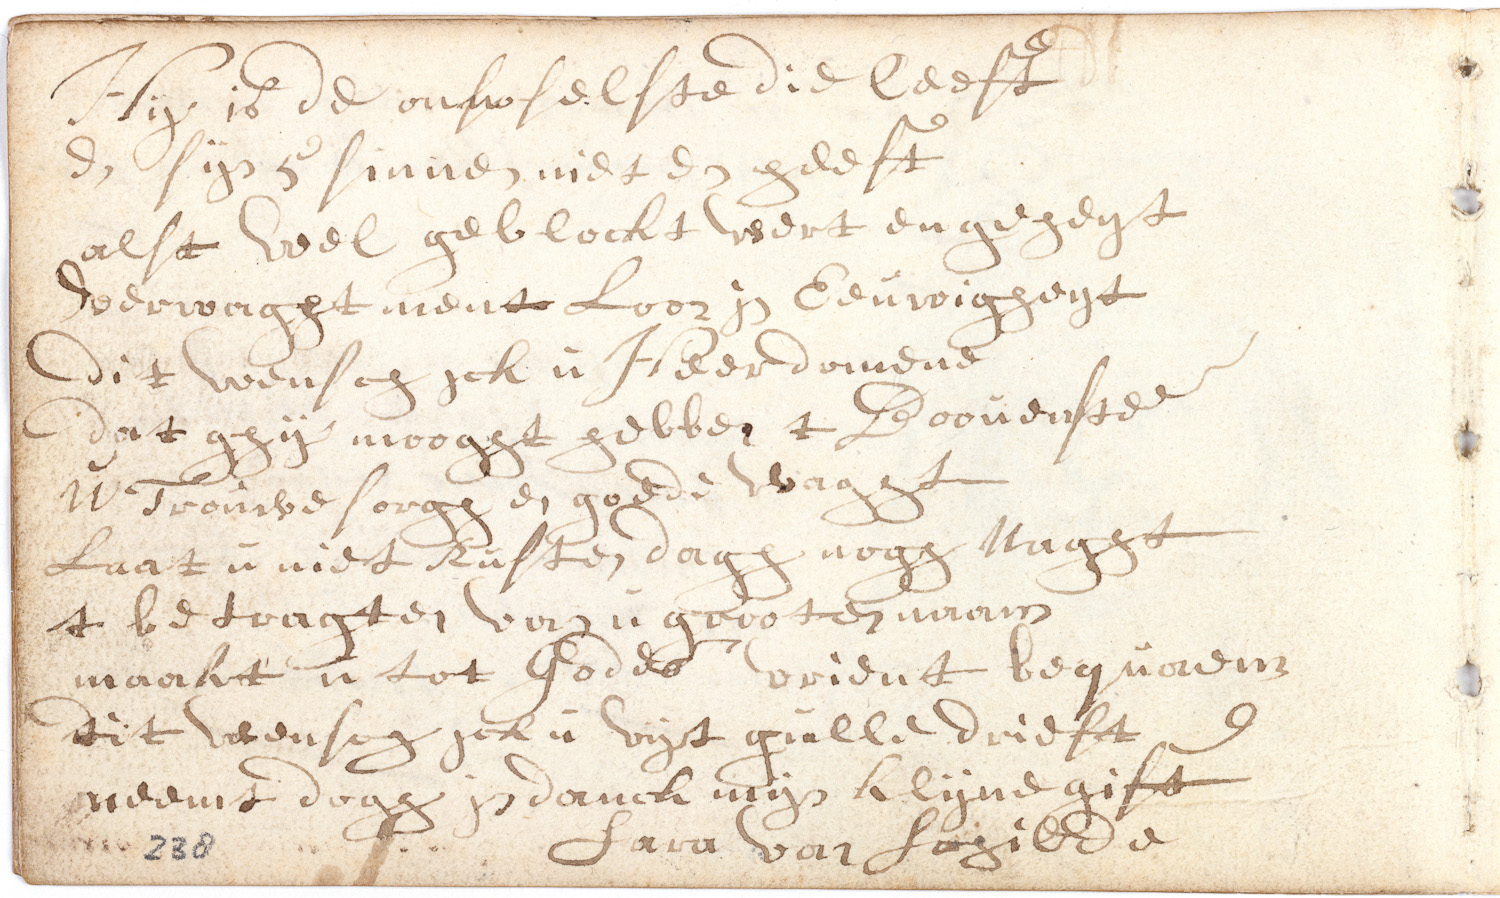 Hij is de onnoselste die Leeft
en sijn 5 sinnen niet en heeft
alst wel geblockt wert en geheyt
verwaght ment Loon jn Eeuwigheyt
dit wensch jck u Heer domene
dat ghij mooght hebben t Boovenste
U Trouwe sorgh en goede waght
Laat u niet Rusten dagh nogh Naght
t betragten van u grooten naam
maakt u tot Godes vrient bequaem
dit wensch jck u uyt gulle drieft
neemt dogh jn danck mijn klijne gift
Sara van
238